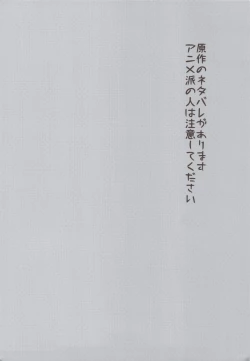 原作のネタバレがあります
アニメ派の人は注意してください